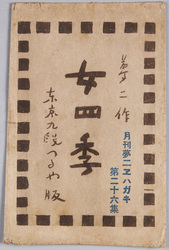 月刊夢二ヱハガキ
第二十六集
夢二作
女四季
東京九段つるや版